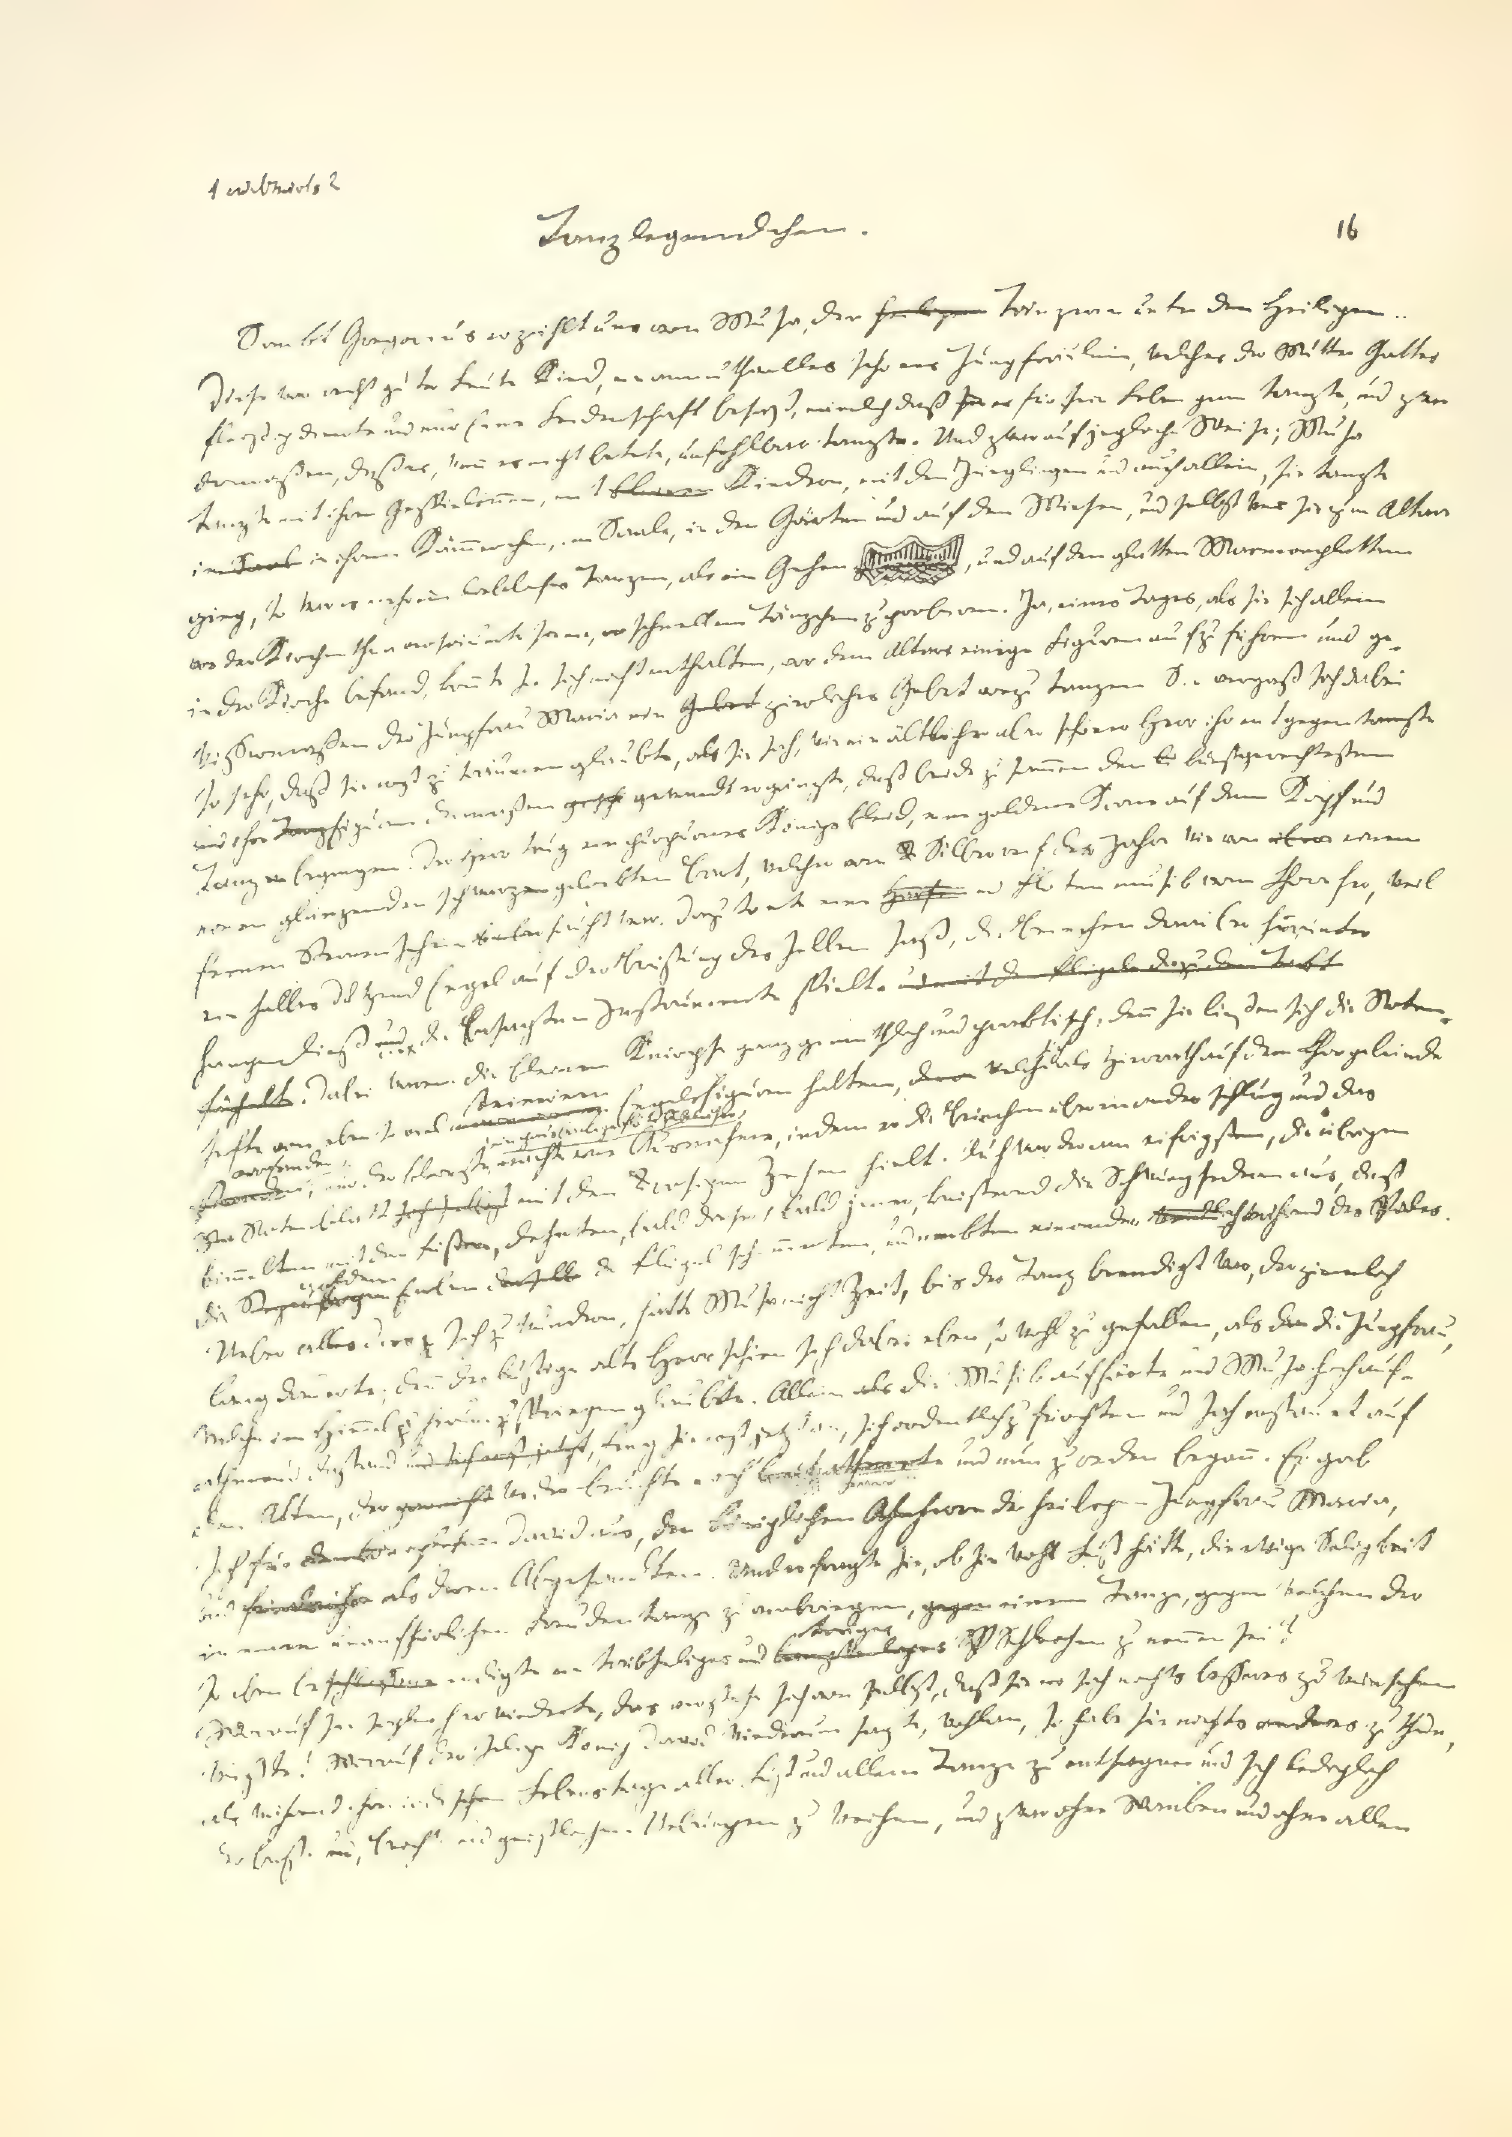 Tanzlegendchen.
16
Sankt Gregorius erzählt uns von Musa, der Tänzerin unter den Heiligen.
Diese war recht guter Leute Kind, ein anmuthvolles schönes Jungfräulein, welches der Mutter Gottes
fleißig diente und nur eine Leidenschaft besaß, nämlich daß es für sein Leben gern tanzte, und zwar
dermaßen, daß es, wenn es nicht betete, unfehlbar tanzte. Und zwar auf jegliche Weise; Musa
tanzte mit ihren Gespielinnen, mit kleinen Kindern, mit den Jünglingen und auch allein, sie tanzte
im Saal in ihrem Kämmerchen, im Saale, in den Gärten und auf den Wiesen, und selbst wenn sie zum Altar
ging, so war es mehr ein liebliches Tanzen, als ein Gehen, und auf den glatten Marmorplatten
vor der Kirchenthür versäumte sie nie, ein schnelles Tänzchen zu probieren. Ja, eines Tages, als sie sich allein
in der Kirche befand, konnte sie sich nicht enthalten, vor dem Altar einige Figuren aufzuführen und ge-
wissermaßen der Jungfrau Maria ein Gebet zierliches Gebet vorzutanzen. Sie vergaß sich dabei
so sehr, daß sie erst zu träumen glaubte, als sie sah, wie ein ältlicher aber schöner Herr ihr entgegen tanzte
und ihre Figuren dermaßen gewandt ergänzte, daß beide zusammen den kunstgerechtesten
Tanz begingen. Der Herr trug ein purpurnes Königskleid, eine goldene Krone auf dem Kopf und
einen glänzenden schwarzen gelockten Bart, welcher vom Silberreif der Jahre wie von einem
fernen Sternenschein überhaucht war. Dazu tönte eine Musik vom Chore her, weil
ein halbes Dutzend Engel auf der Brüstung desselben saß, die Beinchen darüber herunter
hangen ließ und die Instrumente spielte und mit den Flügeln dazu den Takt
fächelte. Dabei waren die kleinen Knirpse ganz gemüthlich und praktisch; denn sie ließen sich die Noten-
hefte von eben so viel steinernen Engelsfiguren halten, welche als Zierrath auf dem Chorgeländer
vorfanden; nur der kleinste, ein pausbäckiger Pfeifenbläser, machte eine Ausnahme, indem er die Beinchen übereinander schlug und das
Notenblatt mit den rosigen Zehen hielt. Auch war der am eifrigsten, die übrigen
bammelten mit den Füßen, dehnten, bald dieser, bald jener, knisternd die Schwungfedern aus, daß
die Farben der Flügel schimmerten, und neckten einander während des Spieles.
Ueber alles dies sich zu wundern, hatte Musa nicht Zeit, bis der Tanz beendigt war, der ziemlich
lang dauerte; denn der lustige alte Herr schien sich dabei eben so wohl zu gefallen, als die Jungfrau,
welche im Himmel herum zu springen glaubte. Allein als die Musik aufhörte und Musa hochauf-
athmend dastand, fing sie erst jetzt an, sich ordentlich zu fürchten und sah erstaunt auf
den Alten, der weder keuchte noch warm hatte und nun zu reden begann. Er gab
sich für David aus, den königlichen Ahnherren der heiligen Jungfrau Maria,
und als deren Abgesandten. Und er fragte sie, ob sie wohl Lust hätte, die ewige Seligkeit
in einem unaufhörlichen Freudentanze zu verbringen, einem Tanze, gegen welchen der
so eben beendigte ein trübseliges und trauriges Schleichen zu nennen sei?
Worauf sie sogleich erwiederte, das verstehe sich von selbst, daß sie sich nichts besseres zu wünschen
wüßte! Worauf der selige König David wiederum sagte, wohlan, so habe sie nichts anderes zu thun,
als während ihrer irdischen Lebenstage aller Lust und allem Tanze zu entsagen und sich lediglich
der Buße und geistlichen Uebungen zu weihen, und zwar ohne Wanken und ohne allen